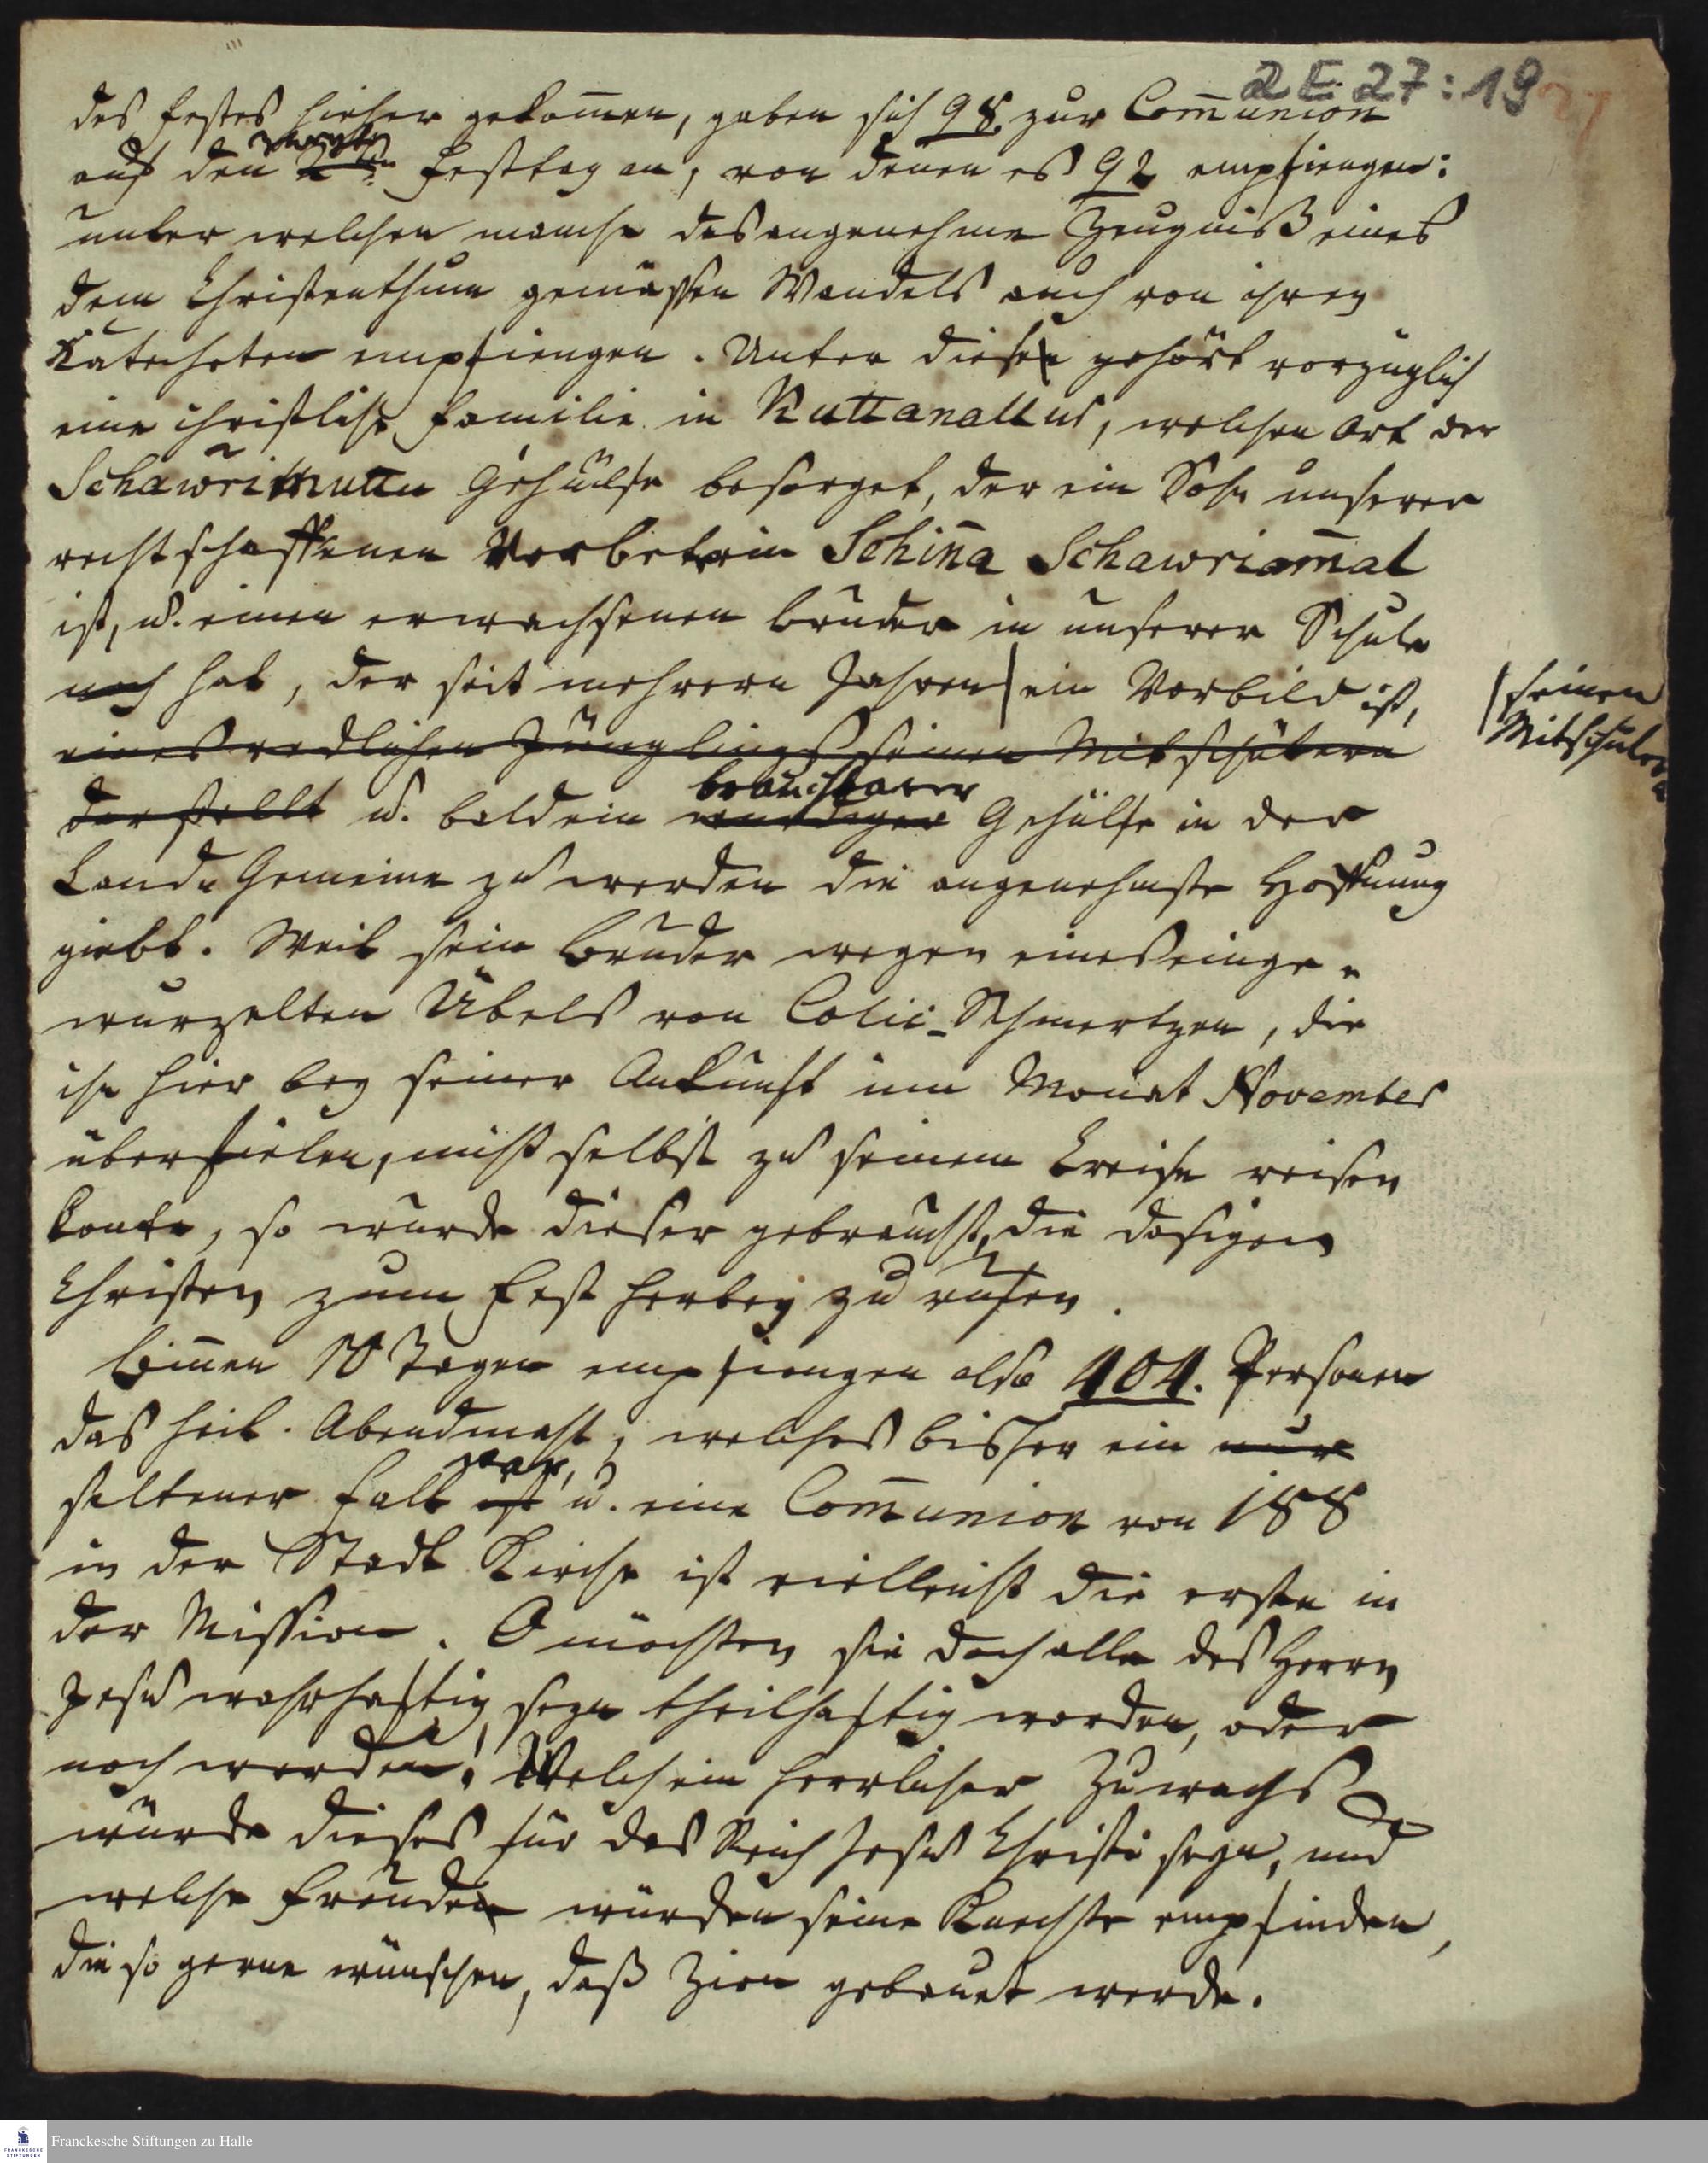 2 E 27:19
des Festes hieher gekom̄en, gaben sich 98. zur Com̄union
auf den zweyten 2ten Festtag an, von denen es 92 empfiengen:
unter welchen manche das angenehme Zeugniß eines
dem Christenthum gemässen Wandels auch von ihren
Katecheten empfiengen. Unter diesen gehört vorzüglich
eine christliche Familie in Kuttanallur, welchen Ort der
Schawrimuttu Gehülfe besorget, der ein Sohn unserer
rechtschaffenen Vorbeterin Schin̄a Schawriam̄al
ist, u. einen erwachsenen Bruder in unserer Schule
noch hat, der seit mehrern Jahren | ein Vorbild ist,
| seinen
Mitschülern
eines redlichen Jünglings seinen Mitschülern
darstellt u. bald ein brauchbarer würdiger Gehülfe in der
Land Gemeine zu werden die angenehmste Hoffnung
giebt. Weil sein Bruder wegen eines einge-
wurzelten Übels von Colic-Schmertzen, die
ihn hier bey seiner Ankunft im Monat November
überfielen, nicht selbst zu seinem Creise reisen
konte, so wurde dieser gebraucht, die dasigen
Christen zum Fest herbey zu rufen.
Bin̄en 10 Tagen empfiengen also 404. Personen
das heil. Abendmahl, welches bisher ein nur
seltener Fall war, ist u. eine Com̄union von 188
in der Stadt Kirche ist vielleicht die erste in
der Mission. O möchten sie doch alle des Herrn
Jesu wahrhaftig seyn theilhaftig worden, oder
noch werden! Welch ein herrlicher Zuwachs
würde dieses für das Reich Jesu Christi seyn, und
welche Freuden würden seine Knechte empfinden,
die so gerne wünschen, daß Zion gebauet werde.
Franckesche Stiftungen zu Halle